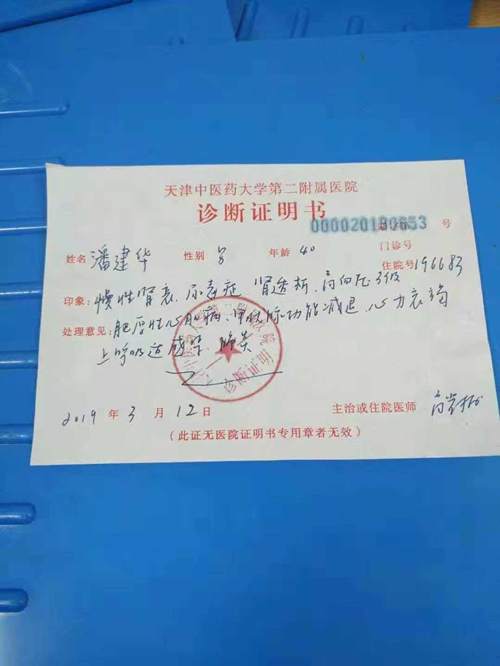 天津中医药大学第二附属医院
诊断证明书
000020190653 号
门诊号
姓名 潘建华 性别 男 年龄 40 住院号196683
印象: 慢性肾衰、尿毒症、肾透析、高血压3级
处理意见: 肥厚性心肌病、甲状腺功能减退、心力衰竭
上呼吸道感染、肺炎
2019 年 3 月 12 日
主治或住院医师
(此证无医院证明书专用章者无效)